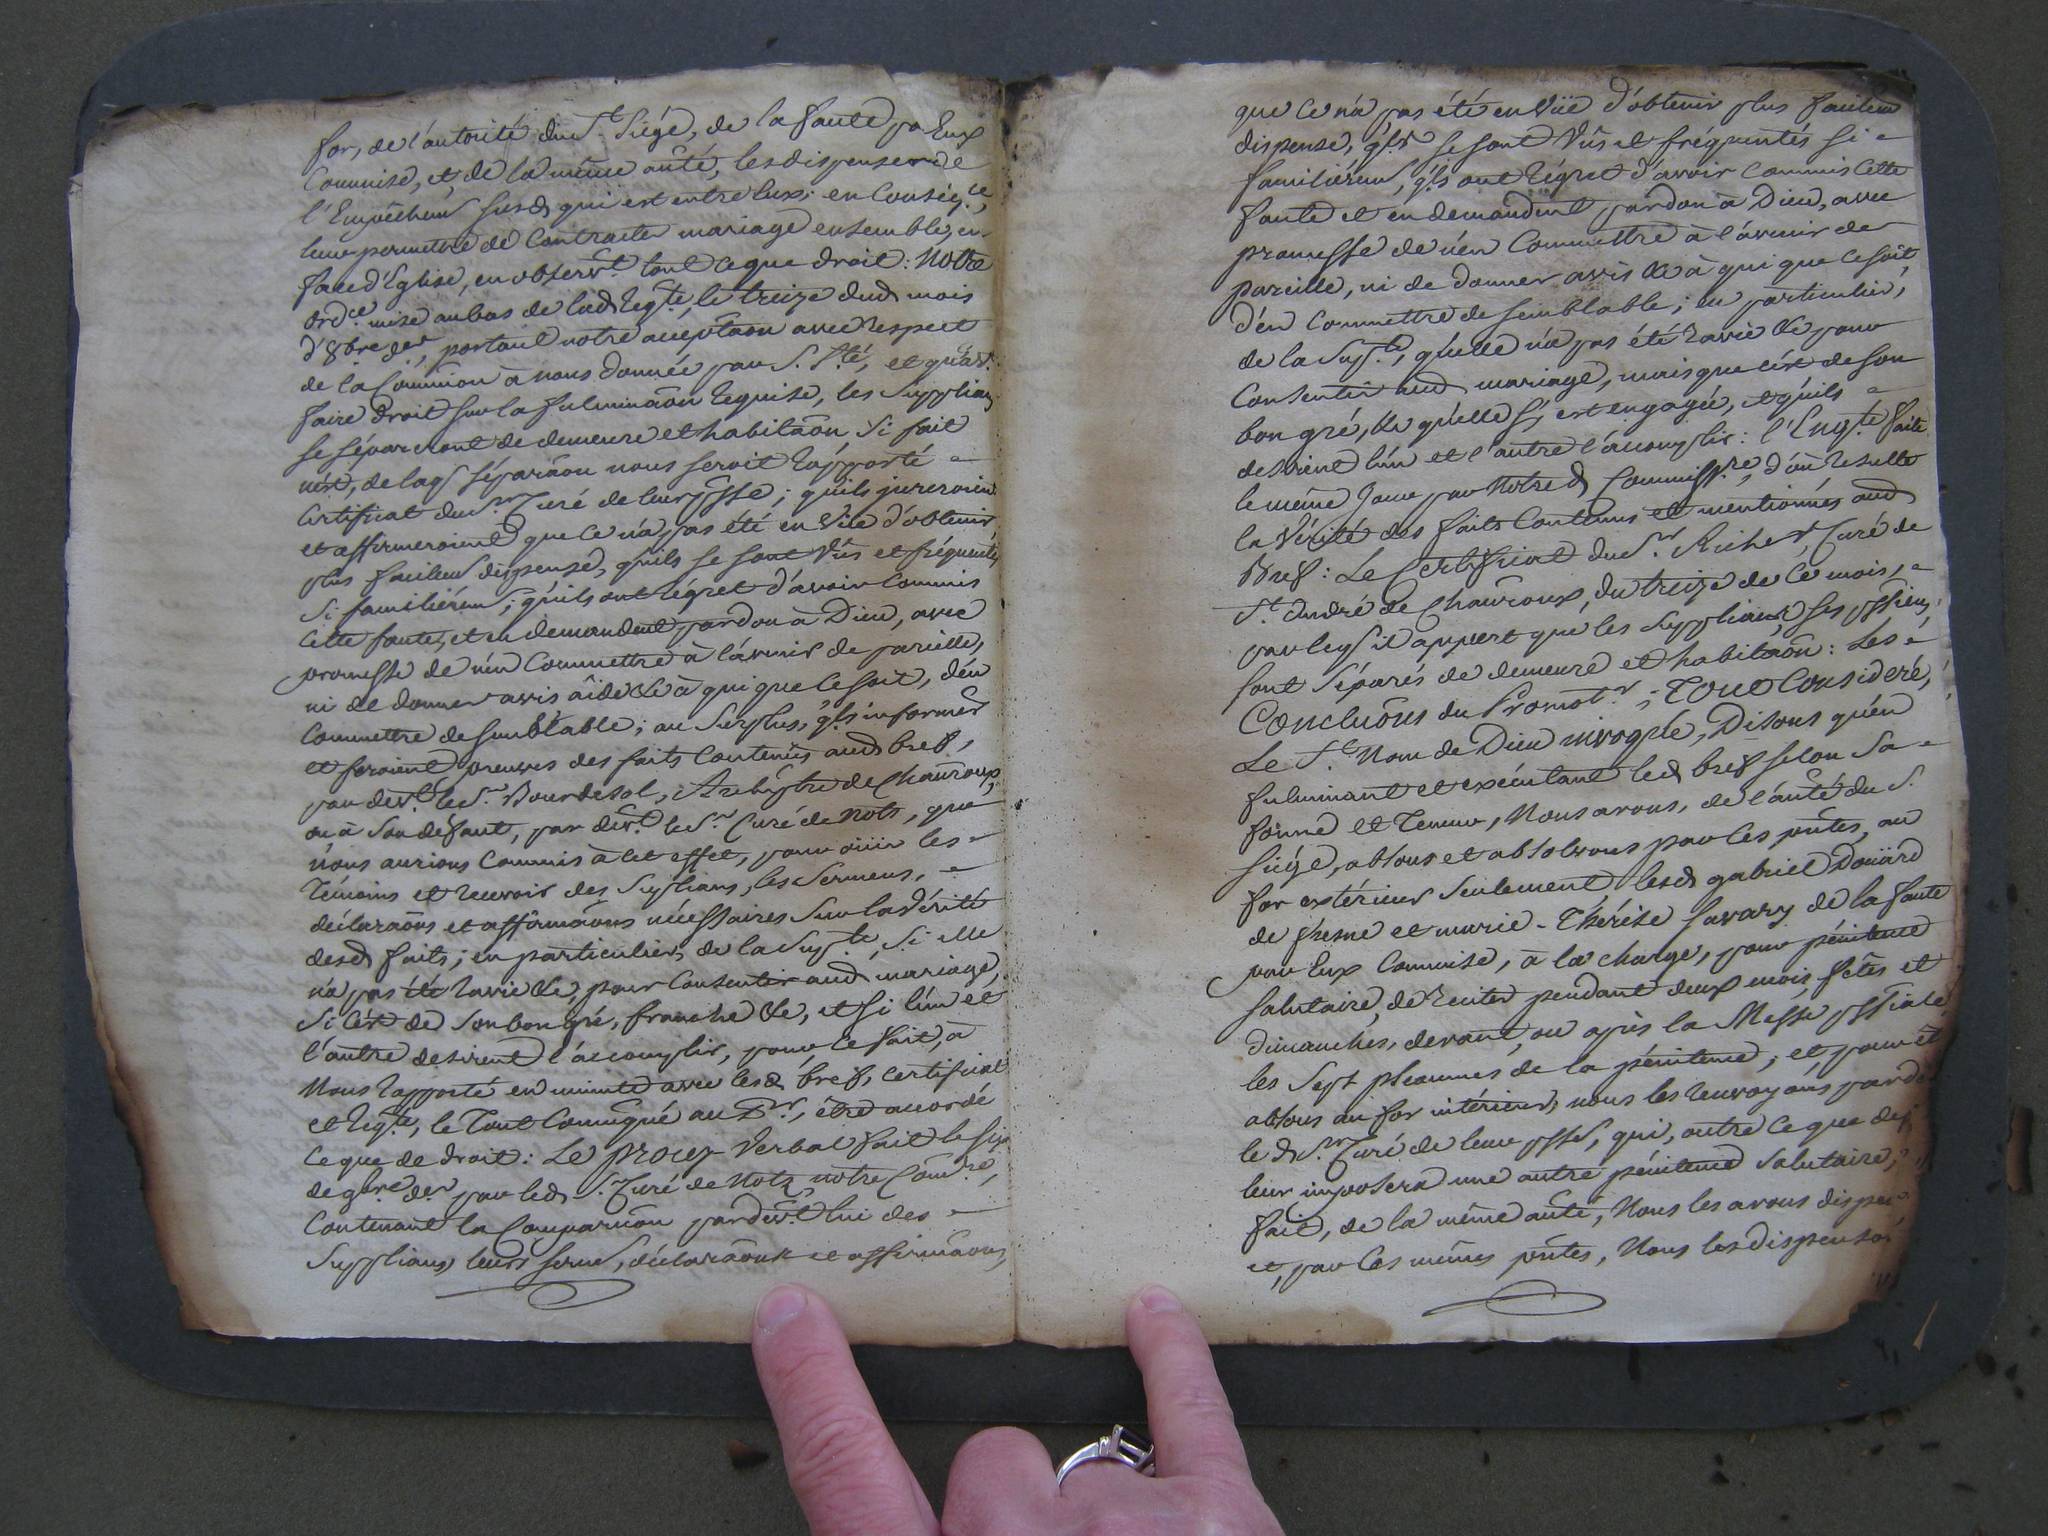 for, de l'autorité du St. Siége, de la faute par Eux
Commise, et, de la même aûté, les dispenser de
l'Empêchem susd qui est entre Eux; en Conséq.ce,
leur permettre de Contracter mariage ensemble, en
face d'Eglise, en observt. tout ce que droit: Notre
ordce. mise au bas de lad Reqte., le treize dud mois
d'8bre der, portant notre acceptaôn avec respect
de la Commion à nous donnée par S. Sté, et qu'avt.
faire droit sur la fulminaôn requise, les Supplians
se sépareront de demeure et habitaôn, si fait
n'est, de laq. séparaôn nous seroit rapporté
Certificat du Sr. Curé de leur psse; qu'ils jureroient
et affirmeroient que ce n'a pas été en Vüe d'obtenir
plus facilem dispense, qu'ils se sont Vûs et fréquentés
si familiérem; qu'ils ont régret d'avoir Commis
Cette faute, et en demandent pardon à Dieu, avec
promesse de n'en Commettre à l'avenir de pareille,
ni de donner avis âide &c à qui que Ce soit, d'en
Commettre de semblable; au Surplus, q'ls informer
et feroient preuves des faits Contenus aud bref,
par devt. le Sr. Bourdesol, Archiptre de Chauroux,
ou à Son défaut, par devt. le Sr. Curé de Noth, que
nous aurions Commis à Cet effet, pour oüir les
témoins et recevoir des Supplians, les Sermens,
déclaraôns et affirmaôns nécessaires Sur la Vérité
desd faits; en particulier, de la Supte, Si elle
n'a pas été ravie &c, pour Consentir aud mariage,
Si c'est de Son bon gré, franche &c, et Si l'un et
l'autre desirent l'accomplir, pour Ce fait, à
Nous rapporté en minute avec lesd bref, certificat
et reqte., le Tout Comuniqué au Pr., être accordé
Ce que de droit: Le procez Verbal fait le six
de 9bre der par led Sr. Curé de Noth, notre Comre,
Contenant la Comparuôn pardevt. lui des
Supplians, leurs serms, déclaraôns et affirmaôns,
que Ce n'a pas été en Vüe d'obtenir plus facilem
dispense, q'ls se sont Vûs et fréquentés si
familiérem, q'ls ont régret d'avoir Commis Cette
faute et en demandent pardon à Dieu, avec
promesse de n'en Commettre à l'avenir de
pareille, ni de donner avis &c à qui que Ce soit,
d'en Commettre de semblable; en particulier,
de la Supte, qu'elle n'a pas été ravie &c pour
Consentir aud mariage, mais que c'est de Son
bon gré, &c qu'elle s'y est engagée, et qu'ils
desirent l'un et l'autre l'accomplir: l'Enqte. faite
le même Jour par Notred Commissre, d'où résulte
la Vérité des faits Contenus et mentionnés aud
Bref: Le Certificat du Sr. Richer, Curé de
St. André de Chauroux, du treize de Ce mois,
par leql il appert que les Supplians, ses pssiens,
sont Séparés de demeure et habitaôn: Les
Concluôns du Promotr.; Tout Considéré,
Le St. Nom de Dieu invoqué, Disons qu'en
fulminant et exécutant led bref selon Sa
forme et Teneur, Nous avons, de l'aûté du S.
Siége, absous et absolvons par Ces pntes, au
for extérieur Seulement, lesd gabriel Doüard
de fresne et marie-Thérèse Savary de la faute
par Eux Commise, à la charge, pour pénitence
salutaire, de réciter pendant deux mois, fêtes et
dimanches, devant, ou après la Messe pssiale
les Sept pseaumes de la pénitence; et pour êt
absous au for intérieur, nous les renvoyons parde
le d Sr. Curé de leur psse, qui, outre Ce que dess
leur imposera une autre pénitence Salutaire;
fait, de la même aûté, Nous les avons dispen
et, par Ces mêmes pntes, Nous les dispenson